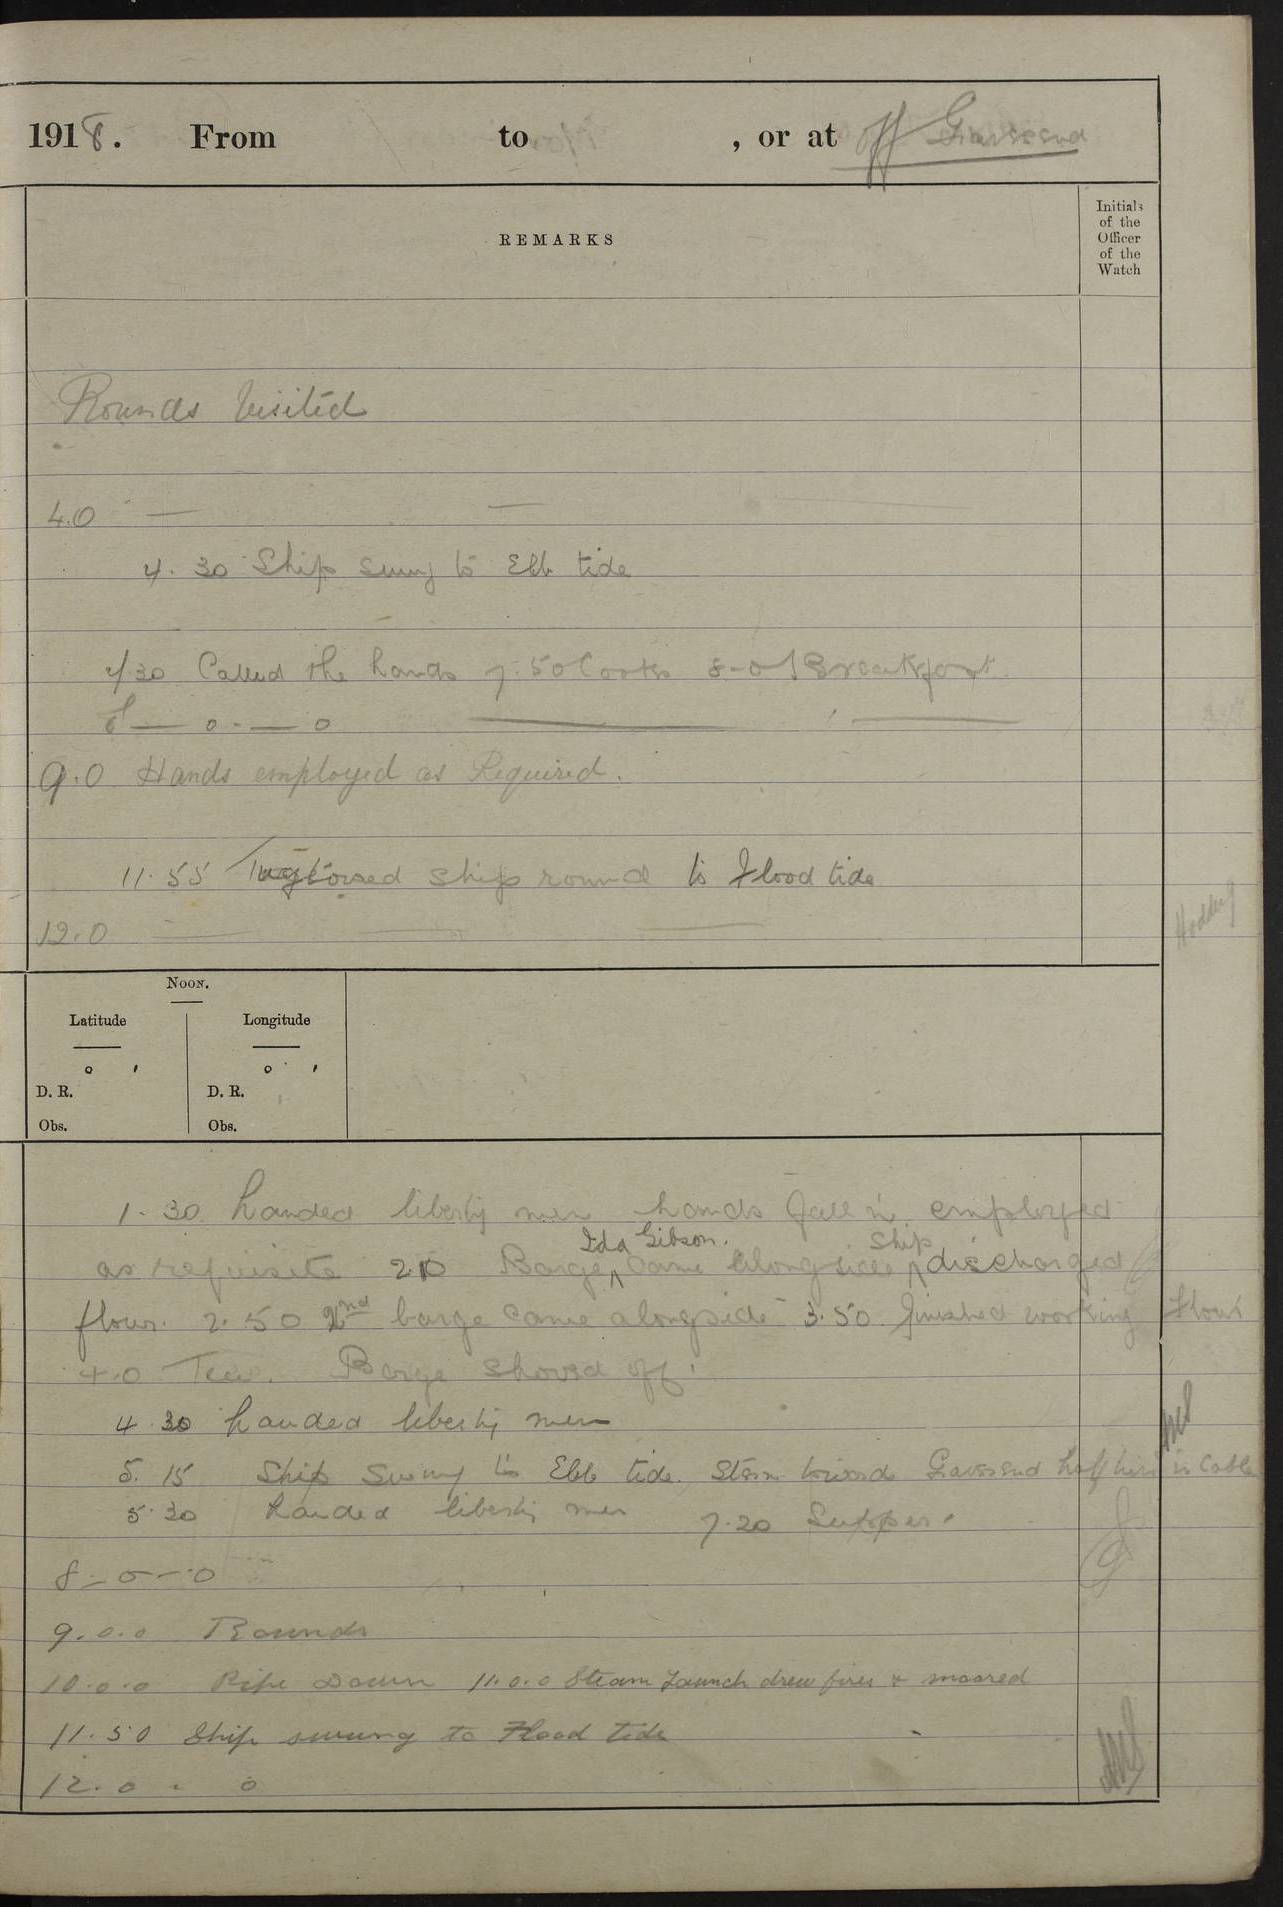 1918. From to , or at off Gravesend
REMARKS
Initials
of the
Officer
of the
Watch
Rounds Visited
4.0
4.30 Ship swung to Ebb tide
7/30 Called the hands 7.50 Cooks 8-0 Breakfast.
8 — 0 - — 0
9.0 Hands employed as Required.
11.55 Tug towed ship round to Flood tide
12.0
Noon.
Latitude Longitude
° ′ ° ′
D. R. D. R.
Obs. Obs.
1.30 Landed liberty men hands fall in employed
Ida Gibson. Ship
as requisite 210 Barge ^ came alongside ^ discharged
flour. 2.50 2nd barge came alongside 3.50 finished working flour
4.0 Tea. Barge shoved off.
4.30 Landed liberty men
5.15 Ship swung to Ebb tide. Stern toward Gravesend half turn in Cable
5.30 Landed liberty men 7.20 Supper.
8 - 0 - - 0
9.0.0 Rounds
10.0.0 Pipe Down 11.0.0 Steam Launch drew fires & moored
11.50 Ship swung to Flood tide
12.0 - 0